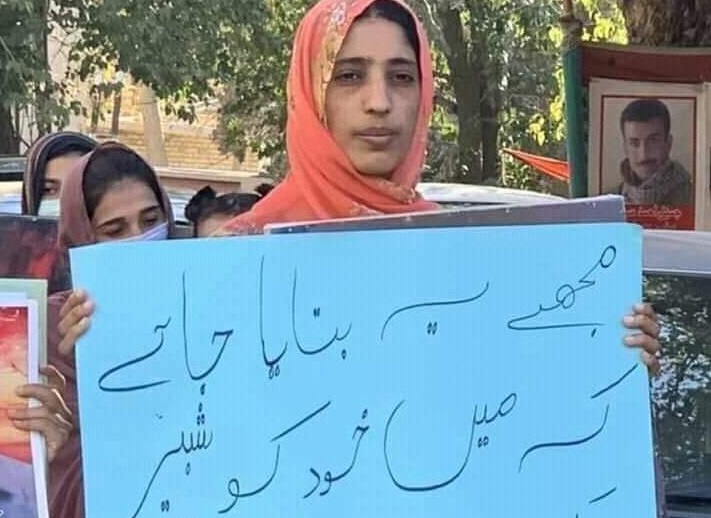 مجھے یہ بتایا جائے
کہ میں خود کو شبیر